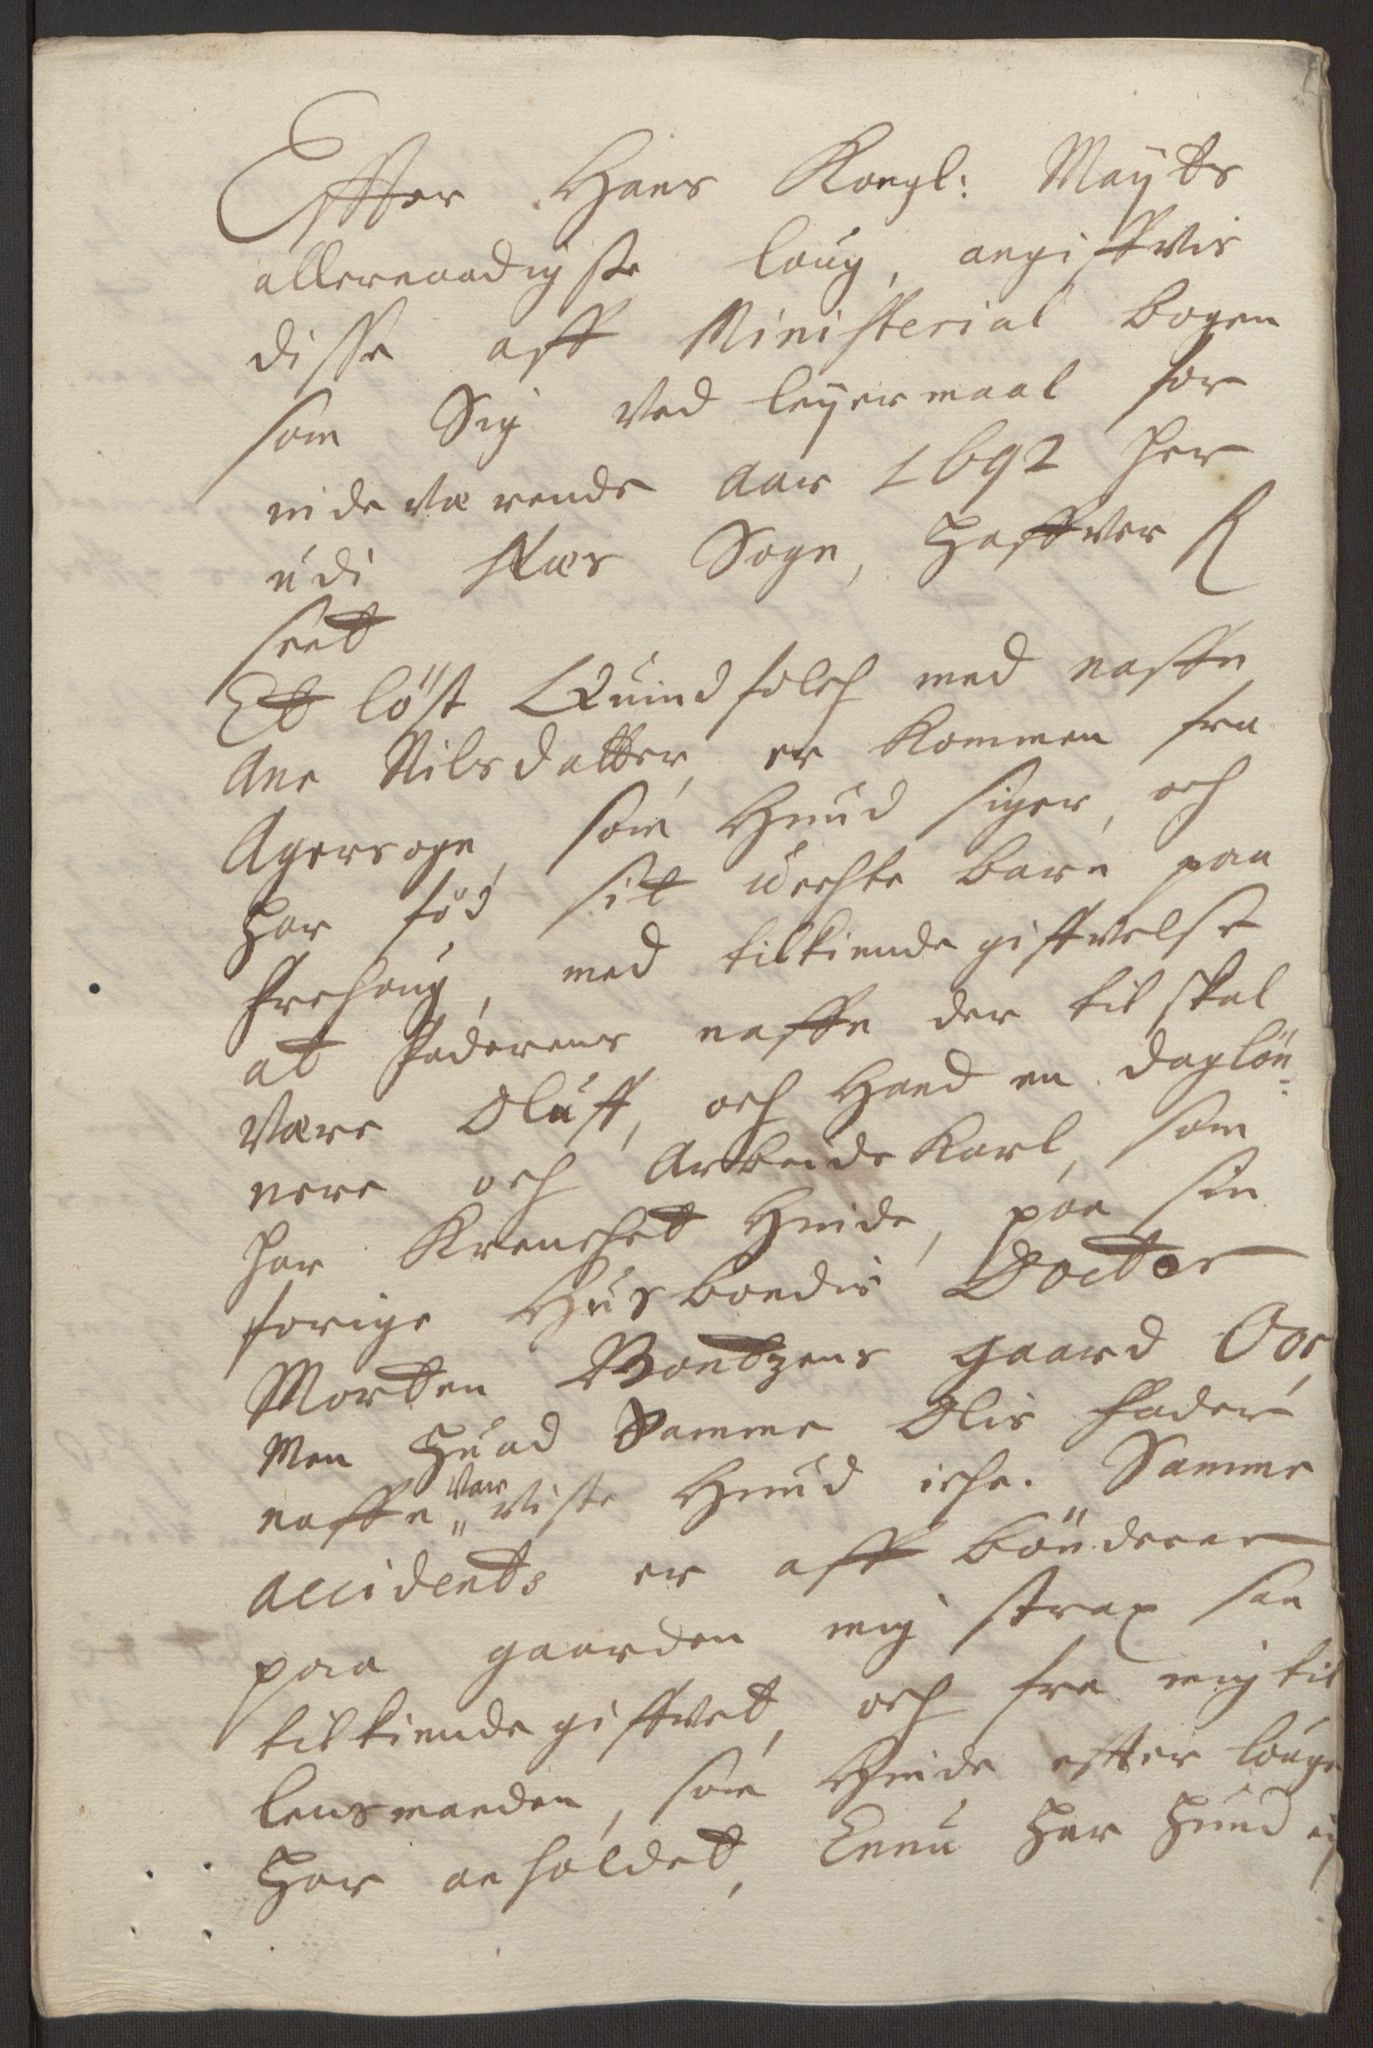 Effter Hans Kongl: Mayts
allernaadigste loug, angiffvis
disse aff Ministerial bogen
som Sig ved leyermaal for
inde værende Aar 1692 her
udi Næs Sogn, haffver
seet
Et löst Quindfolch med naffn
Ane Nilsdatter, er kommen fra
Agersogn, som Hund siger, och
har fød sit uechte barn paa
, med tilkiende giffvelse
at Faderens naffn der til skal
være Oluff, och Hand en daglön-
nere och Arbeidskarl, som
har krenchet Hinde, paa sin
forige Husbondis Docter
Morten gaard Oos,
Men huad Samme Olis Fader
naffn var viste Hund iche. Samme
accidents er aff bönderne
paa gaarden mig strax saa
tilkiende giffvet, och fra mig til
lensmanden, som Hinde effter lougen
har anholdet, Ennu har hund ej